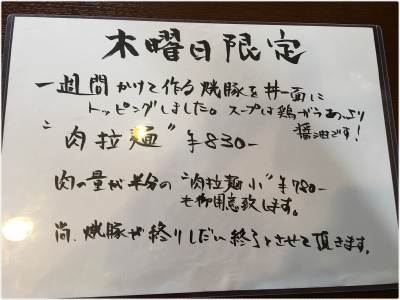 木曜日限定
一週間かけて作る焼豚を丼一面に
トッピングしました。スープは鶏がらあっさり
醤油です！
"肉拉麺" ¥830-
肉の量が半分の "肉拉麺小" ¥780-
も御用意致します。
尚、焼豚が終りしだい終了とさせて頂きます。